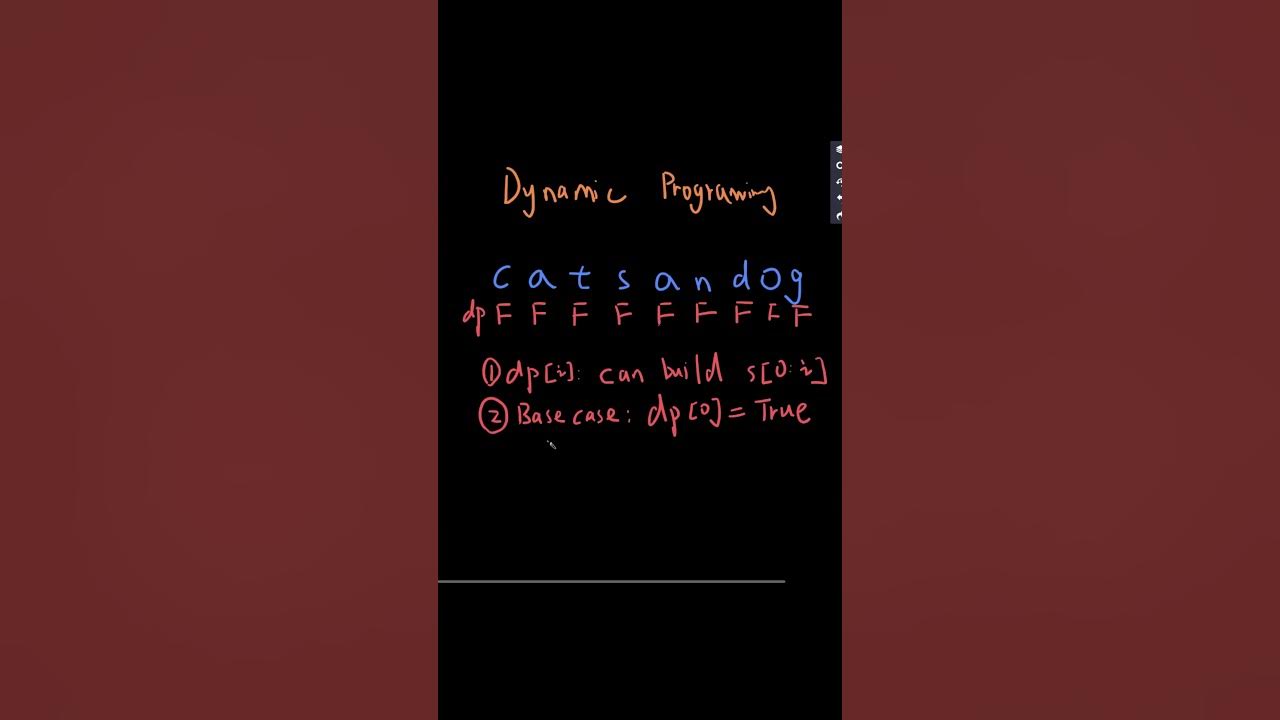 Dynamic Programing
c a t s a n d o g
dp F F F F F F F F F
① dp[i]: can build s[0:i]
② Base case: dp[0] = True